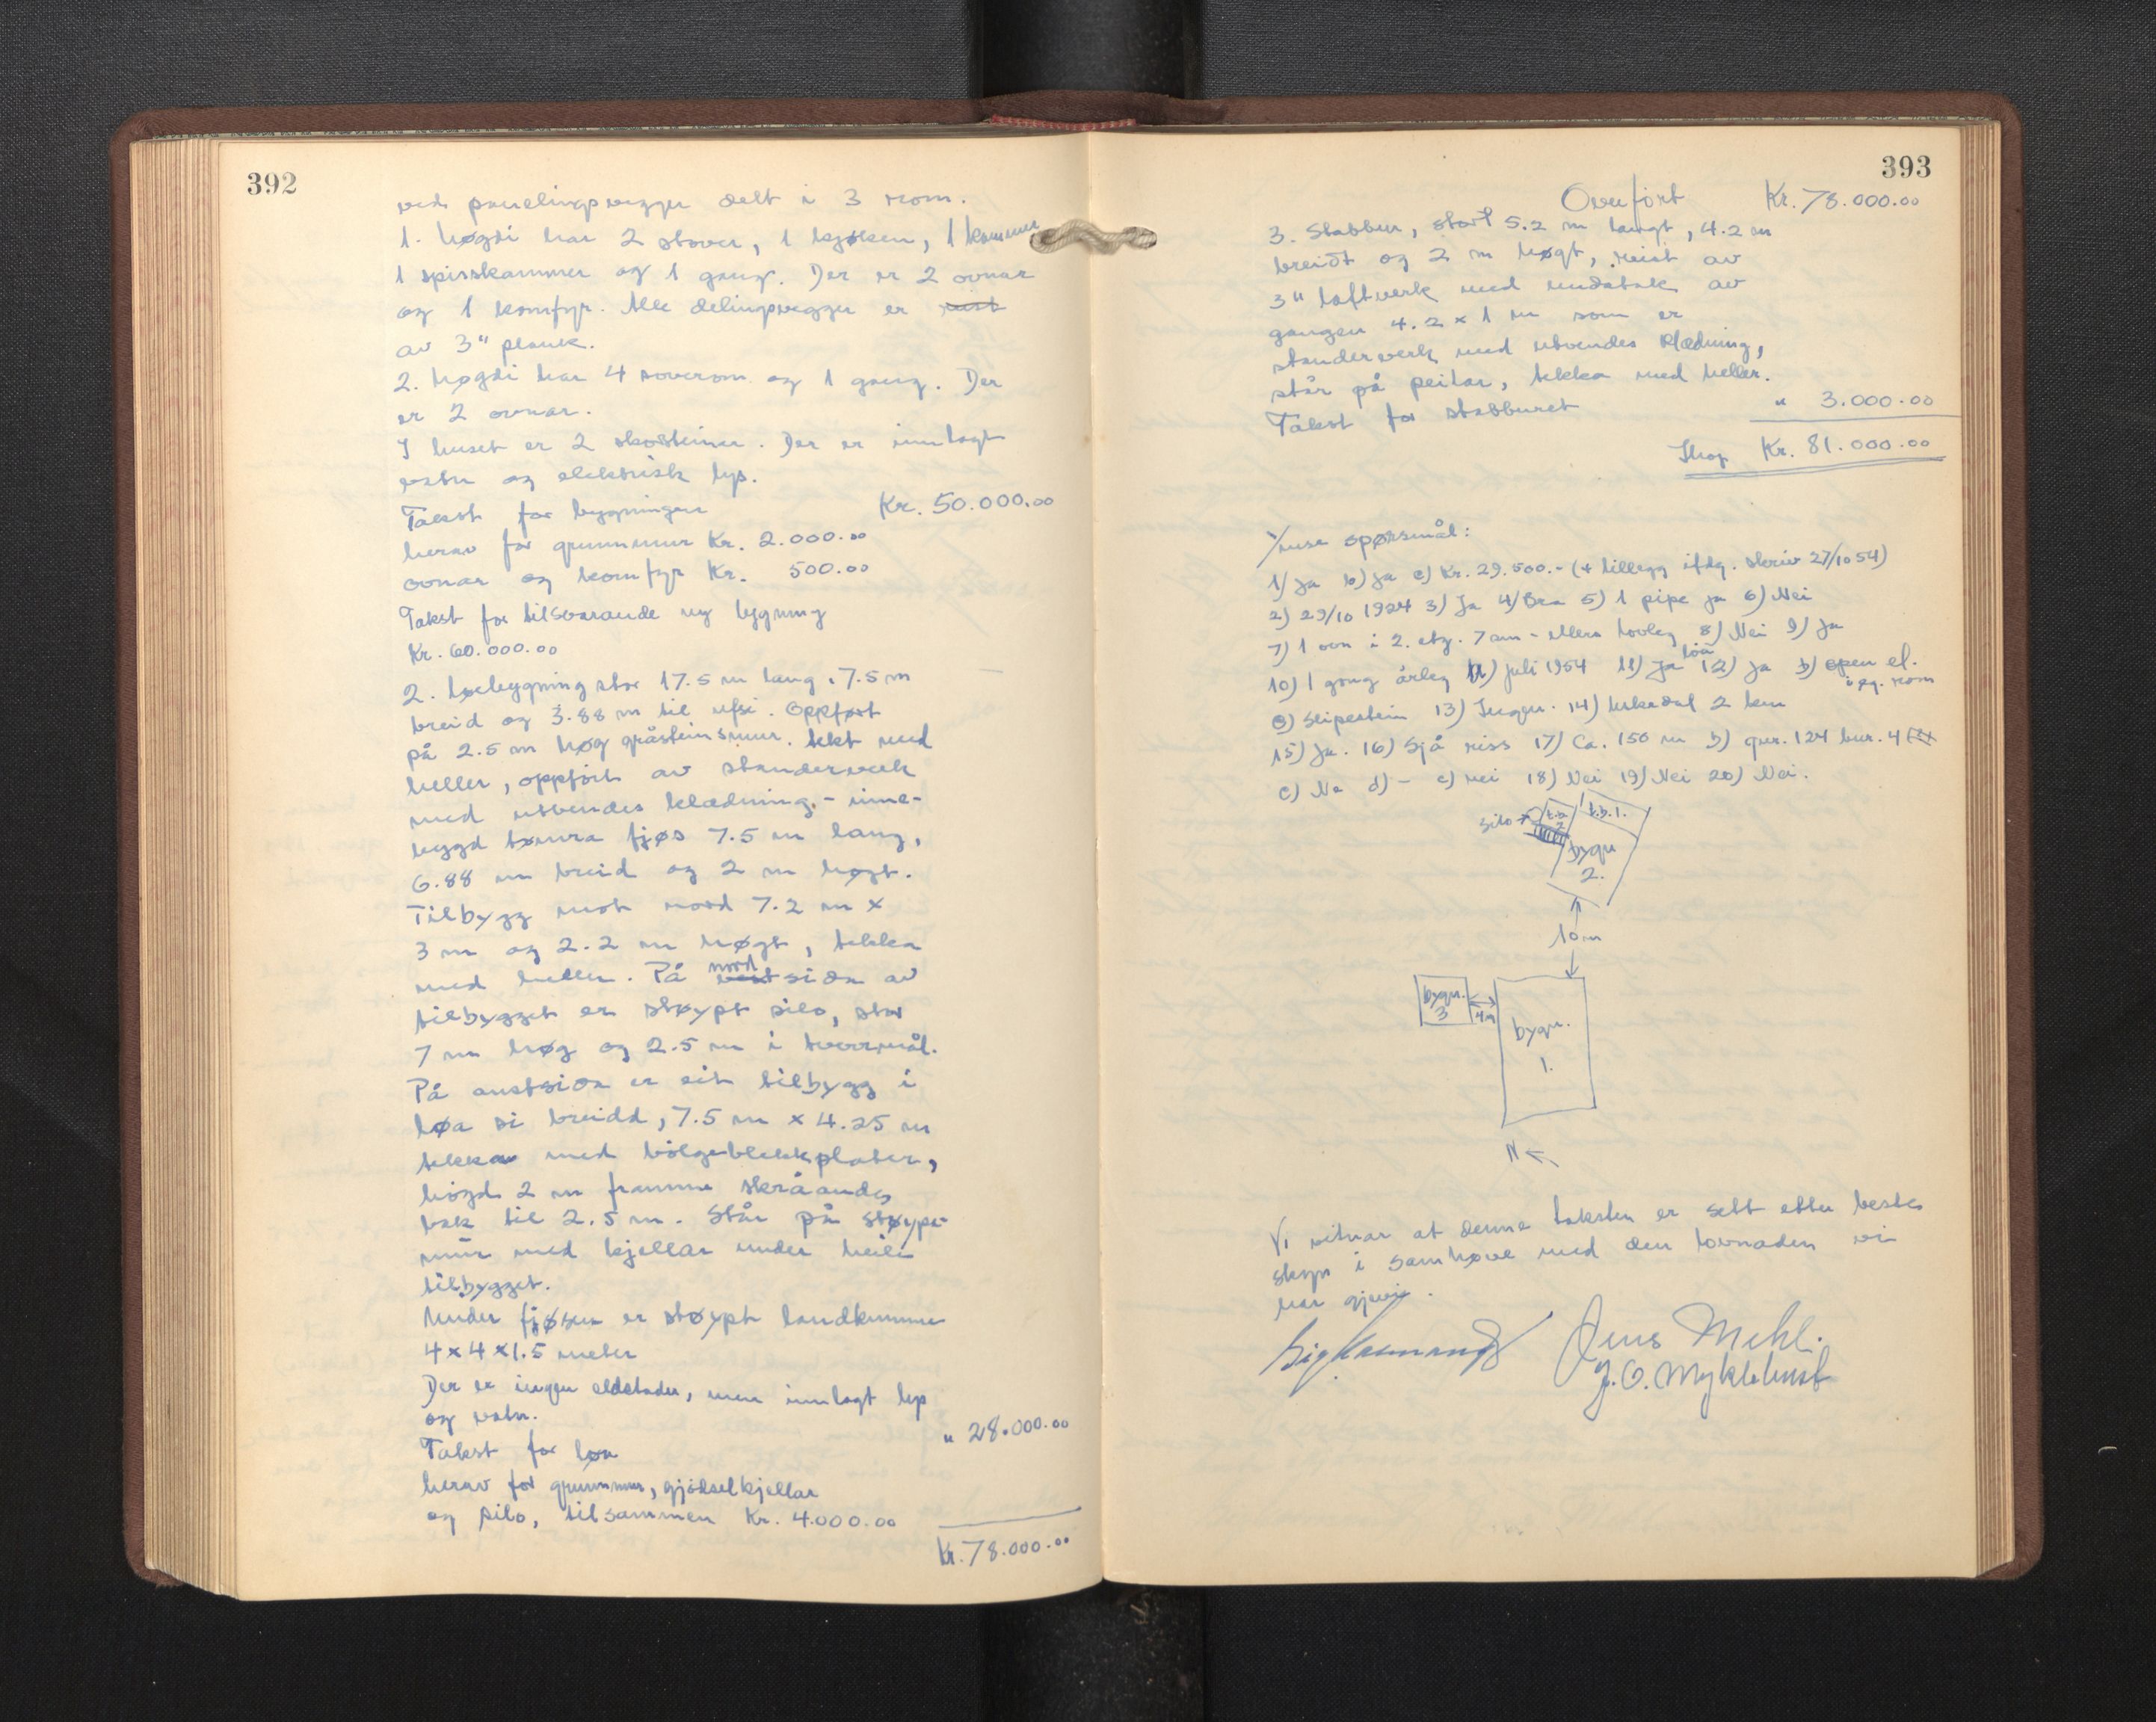 392
ved panelingsvegger delt i 3 rom.
1. høgdi har 2 stover, 1 kjøken, 1 kammer
1 spisskammer og 1 gang. Der er 2 ovnar
og 1 komfyr. Alle delingsvegger er reist
av 3" plank.
2. høgdi har 4 soverom og 1 gang. Der
er 2 ovnar.
I huset er 2 skorsteiner. Der er innlagt
vatn og elektrisk lys.
Takst for bygningen Kr. 50.000.00
herav for grunnmur Kr. 2.000.00
ovnar og komfyr Kr. 500.00
Takst for tilsvarande ny bygning
Kr. 60.000.00
2. Løebygning stor 17.5 m lang, 7.5 m
breid og 3.88 m til ufsi. Oppført
på 2.5 m høg gråsteinsmur. tekt med
heller, oppført av standerverk
med utvendes klædning, - inne-
bygd tømra fjøs 7.5 m lang,
6.88 m breid og 2 m høgt.
Tilbygg mot nord 7.2 m x
3 m og 2.2 m høgt, tekka
med heller. På vest nord sida av
tilbygget er støypt silo, stor
7 m høg og 2.5 m i tverrmål.
På austsida er eit tilbygg i
løa si breidd, 7.5 m x 4.25 m
tekka med bölgeblekkplater,
högd 2 m framme skråandes
bak til 2.5 m. Står på støype-
mur med kjellar under heile
tilbygget.
Under fjøsen er støypt landkumme
4 x 4 x 1.5 meter
Der er ingen eldstader, men innlagt lys
og vatn.
Takst for løa " 28.000.00
herav for grunnmur, gjödselkjellar
og silo, tilsammen Kr. 4.000.00
Kr. 78.000.00
393
Overført Kr. 78.000.00
3. Stabbur, stort 5.2 m langt, 4.2 m
breidt og 2 m høgt, reist av
3" laftverk med undatak av
gangen 4.2 x 1 m som er
standerverk med utvendes klædning,
står på peilar, tekka med heller.
Takst for stabburet " 3.000.00
Ihop Kr. 81.000.00
Ymse spørsmål:
1) Ja b) Ja c) Kr. 29.500.- (+ tillegg iflg. skriv 27/10 54)
2) 29/10 1924 3) Ja 4) Bra 5) 1 pipe ja 6) Nei
7) 1 ovn i 2. etg. 7 cm - ellers lovleg 8) Nei 9) Ja
10) 1 gong årleg 11) juli 1954 11) Ja løa 12) Ja b) open el. i eg. rom
c) Slipestein 13) Ingen. 14) 2 km
15) Ja. 16) Sjå riss 17) Ca. 150 m b) gnr. 124 bnr. 4
c) Ne d) - e) nei 18) Nei 19) Nei 20) Nei.
silo → t.b. 2 t.b. 1.
bygn 2.
10 m
bygn. 3
4 m
bygn. 1.
N ←
Vi vitnar at denne taksten er sett etter beste
skjyn i samhøve med den lovnaden vi
har gjevi.
Jens Mehl.
J. O. Myklebust